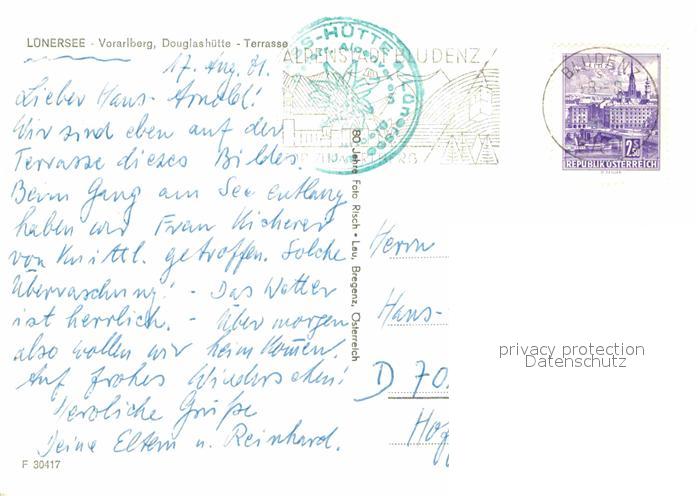 LÜNERSEE - Vorarlberg, Douglashütte - Terrasse
17. Aug. 81.
Lieber Hans-Arnold!
Wir sind eben auf der
Terrasse dieses Bildes.
Beim Gang am See entlang
haben wir Frau Kicherer
von Knittl. getroffen. Solche
Überraschung! - Das Wetter
ist herrlich. - Übermorgen
also wollen wir heim kommen.
Auf frohes Wiedersehen!
Herzliche Grüße
Deine Eltern u. Reinhard.
F 30417
80 Jahre Foto Risch • Lau, Bregenz, Österreich
S-HÜTTE
Lünersee
ALPENSTADT BLUDENZ
BLUDENZ
2.50
REPUBLIK ÖSTERREICH
Herrn
Hans-
D 70
privacy protection
Datenschutz